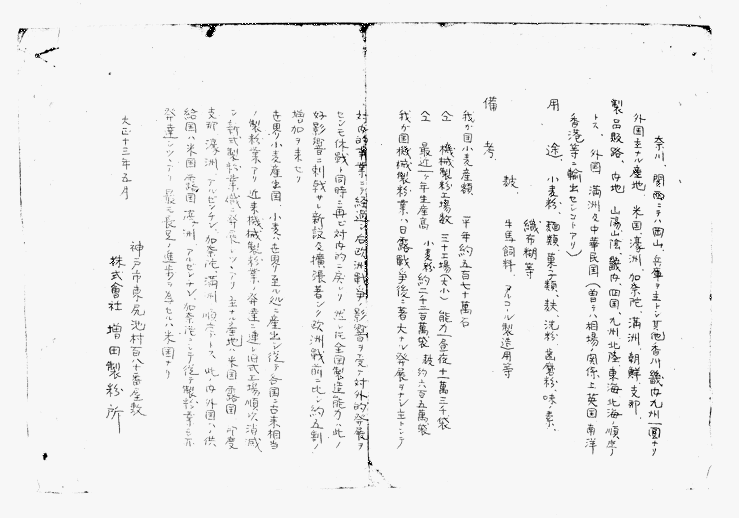 奈川、関西ニテハ岡山、兵庫ヲ主トシ其他香川畿内九州一圓ナリ
外国主ナル産地 米国 濠洲 加奈陀、満洲、朝鮮、支那、
製品販路、内地 山陽 山陰、畿内 四国、九州 北陸 東海 北海ノ順序
トス、外国 満洲及中華民国(曽テハ相場ノ関係上英国 南洋
香港等ニ輸出セシコトアリ)
用途、小麦粉、麺類、菓子類、麸、洗粉、歯磨粉、味ノ素、
織布糊等
麸 牛馬飼料、アルコール製造用等
備考
我が国小麦産額 平年約五百七十萬石
仝 機械製粉工場数 三十工場(大小) 能力一昼夜十一萬三千袋
仝 最近一ケ年生産高 小麦粉約二千三百萬袋 麸約六百五萬袋
我が国機械製粉業ハ日露戦争後ニ著大ナル発展ヲナシ主トシテ
対内的事業ニテ経過シ后欧洲戦争ノ影響ヲ受ケ対外的発展ヲ
セシモ休戦ト同時ニ再ビ対内的ニ戻レリ 然シ民全国製造能力ハ此ノ
好影響ニ刺戟サレ新設及擴張著シク欧洲戦前ニ比シ約五割ノ
増加ヲ来セリ
世界小麦産出国 小麦ハ世界ヲ至ル処ニ産出シ従テ各国ニ古来相当
ノ製粉業アリ 近来機械製粉業ノ発達ニ連レ旧式工場順次消滅
シ新式製粉業幟ヲ発展シツヽアリ 主ナル産地ハ米国 露国 印度
支那 濠洲 アルゼンチン、加奈陀、満洲ノ順序トス、此内外国ヘノ供
給国ハ米国 露国 濠洲 アルゼンチン、加奈陀ニシテ従テ製粉業モ亦
発達シツヽアリ 最モ長足ノ進歩ヲ為セルハ米国ナリ
大正十三年五月
神戸市東尻池村百八十番屋敷
株式會社 増田製粉所